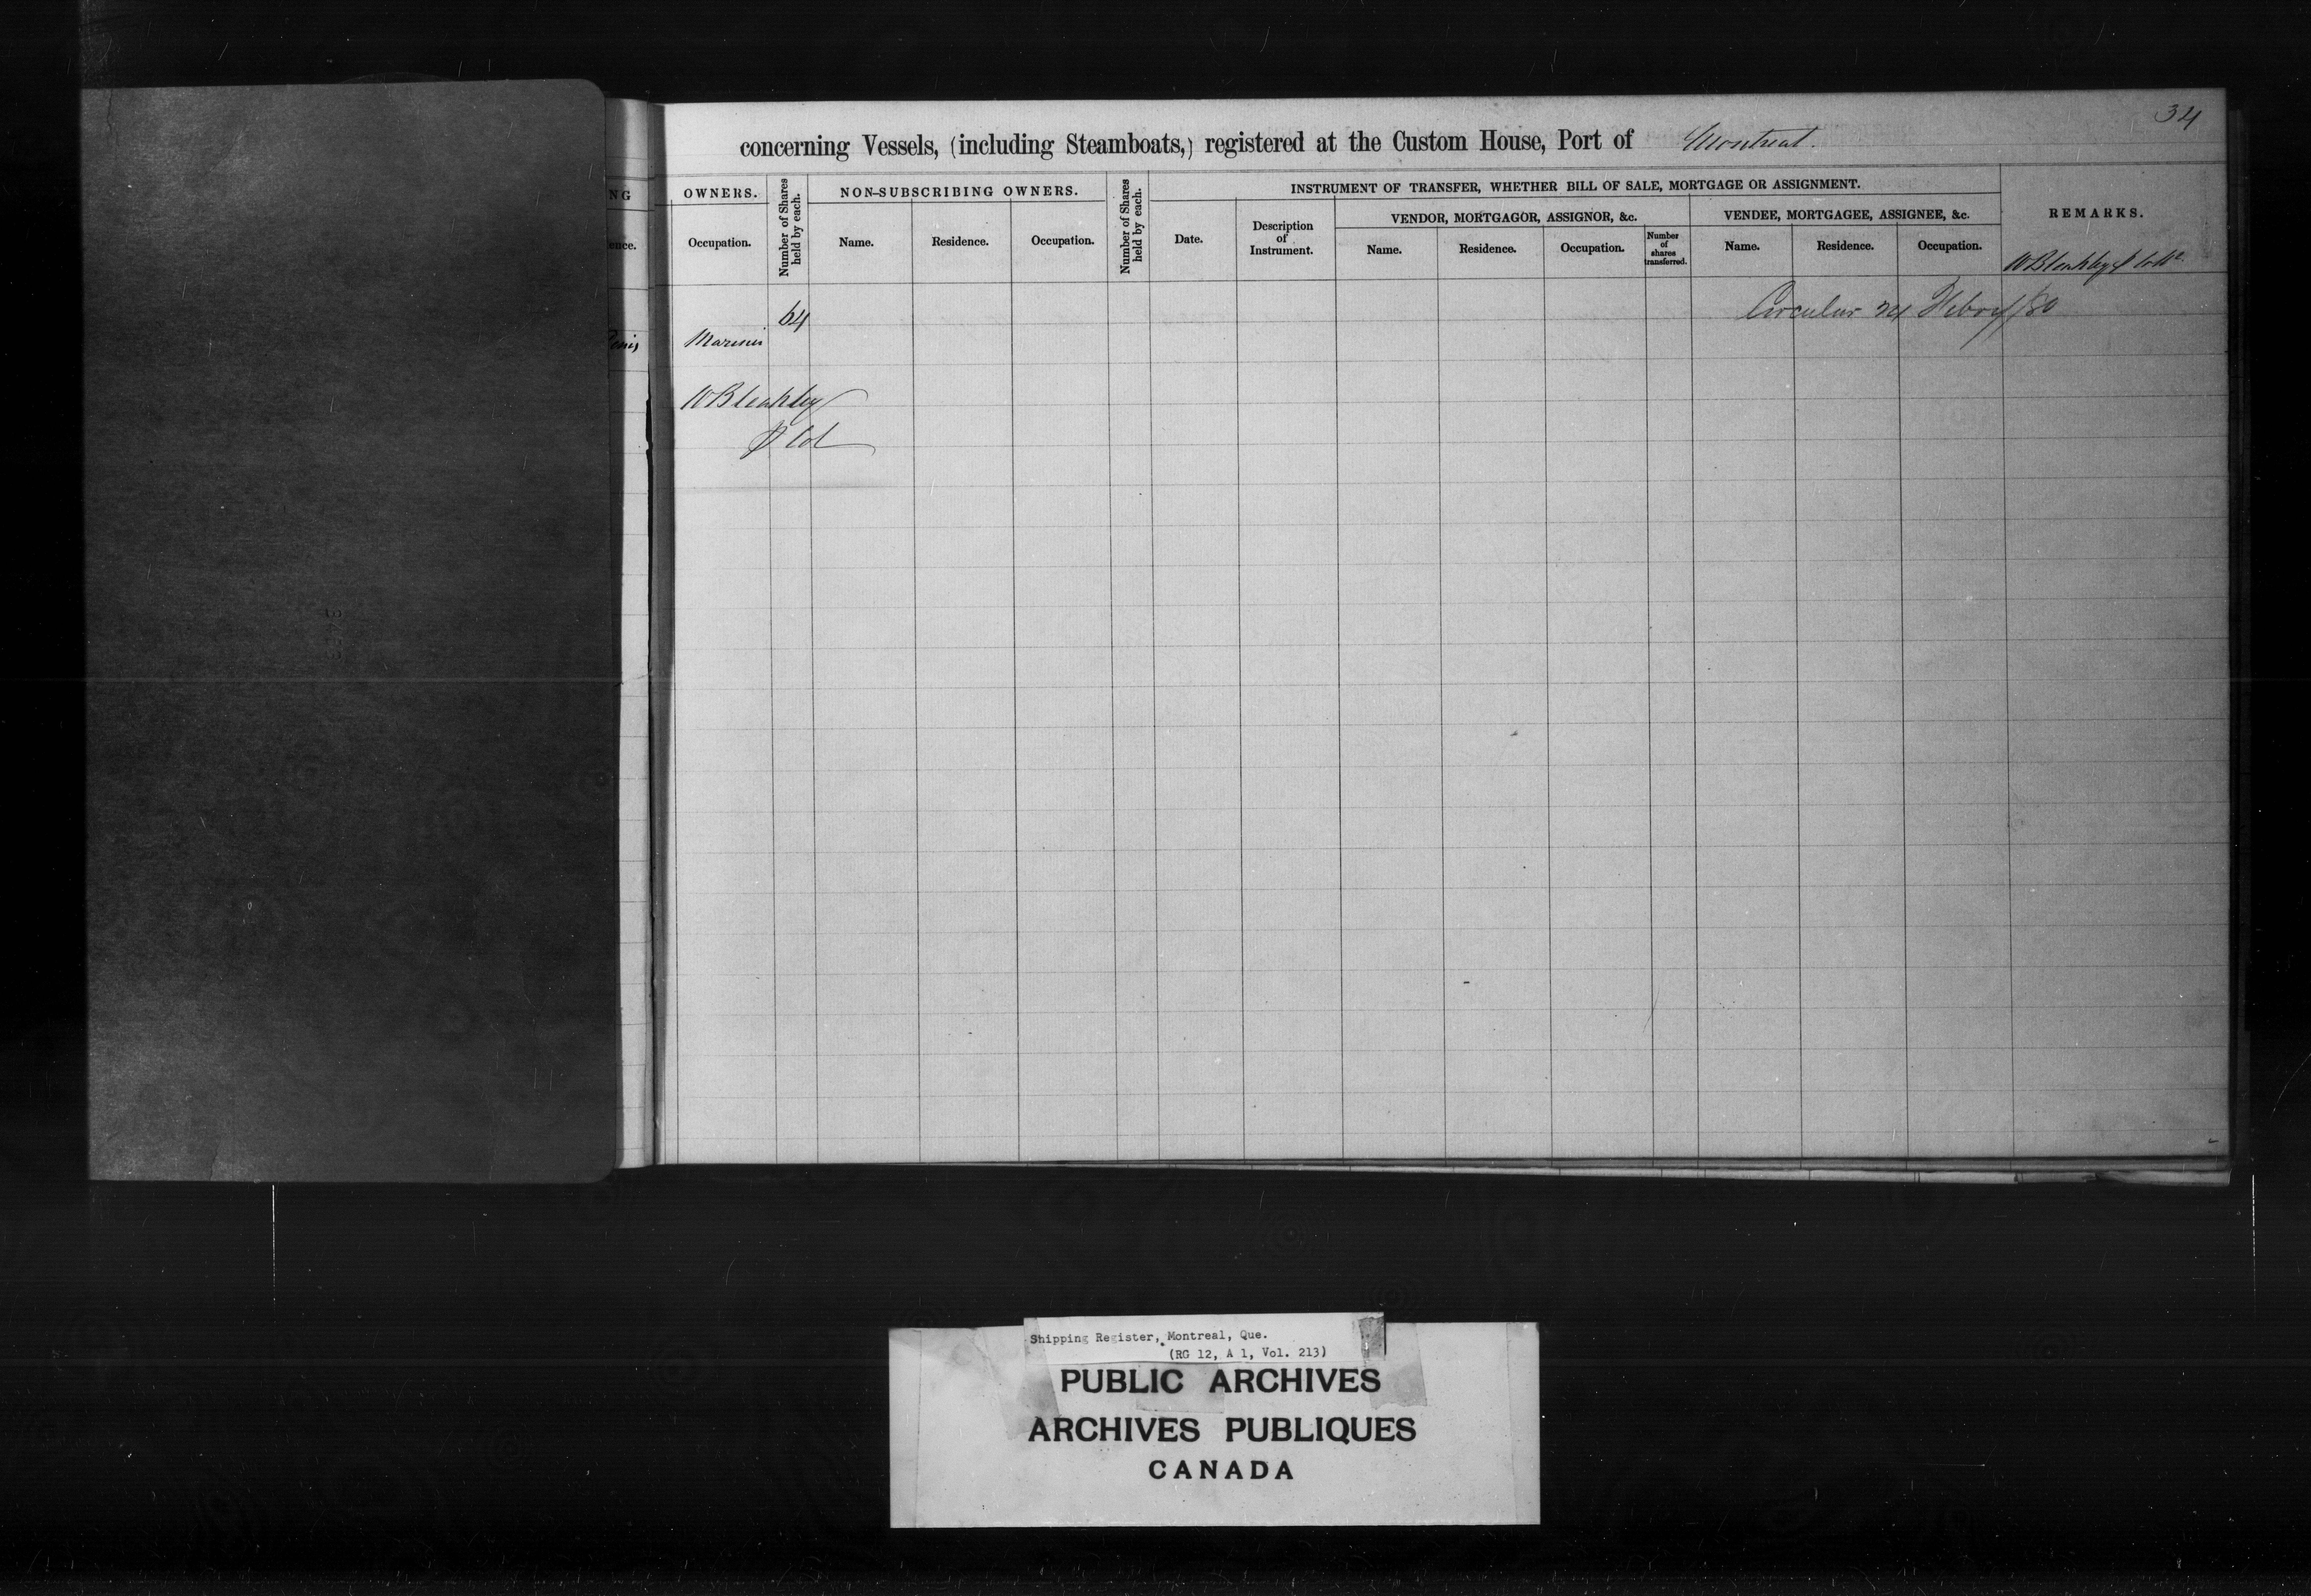 34
concerning Vessels, (including Steamboats,) registered at the Custom House, Port of Montreal.
NG OWNERS. Number of Shares held by each. NON-SUBSCRIBING OWNERS. Number of Shares held by each. INSTRUMENT OF TRANSFER, WHETHER BILL OF SALE, MORTGAGE OR ASSIGNMENT. REMARKS.
VENDOR, MORTGAGOR, ASSIGNOR, &c. VENDEE, MORTGAGEE, ASSIGNEE, &c.
ence. Occupation. Name. Residence. Occupation. Date. Description of Instrument. Name. Residence. Occupation. Number of shares transferred. Name. Residence. Occupation.
W Bleakley
64 Circular 24 Febry/80
Denis Mariner
W Bleakley
Col
Shipping Register, Montreal, Que.
(RG 12, A 1, Vol. 213)
PUBLIC ARCHIVES
ARCHIVES PUBLIQUES
CANADA